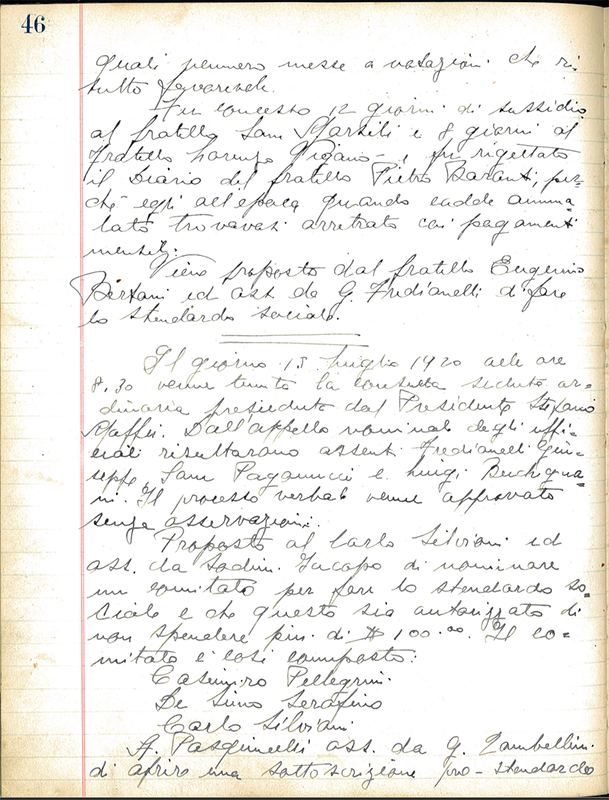 46
quali vennero messe a votazioni che ri=
sultò favorevole.
Fu concesso 12 giorni di sussidio
al fratello Sam Marsili e 8 giorni al
fratello Lorenzo Vigano -, fu rigettato
il Diario del fratello Pietro Baranti, per=
chè egli all'epoca quando cadde amma=
lato trovavasi arretrato coi pagamenti
mensili.
Viene proposto dal fratello Eugenio
Bertani ed ass. da G. Fredianelli di fare
lo stendardo sociale.
Il giorno 15 Luglio 1920 alle ore
8.30 venne tenuta la consueta seduta or=
dinaria presieduta dal Presidente Stefano
Maffei. Dall'appello nominale degli uffi=
ciali risultarono assenti Fredianelli Giu=
seppe, Sam Paganucci e Luigi Buchigna=
ni. Il processo verbale venne approvato
senza osservazioni.
Proposto al Carlo Silviani ed
ass. da Sodini Jacopo di nominare
un comitato per fare lo stendardo so=
ciale e che questo sia autorizzato di
non spendere piu di $ 100.00. Il co=
mitato è così composto:
Casimiro Pellegrini
De Simo Serafino
Carlo Silviani
A. Pasquinelli ass. da G. Zambellini
di aprire una sottoscrizione pro-stendardo